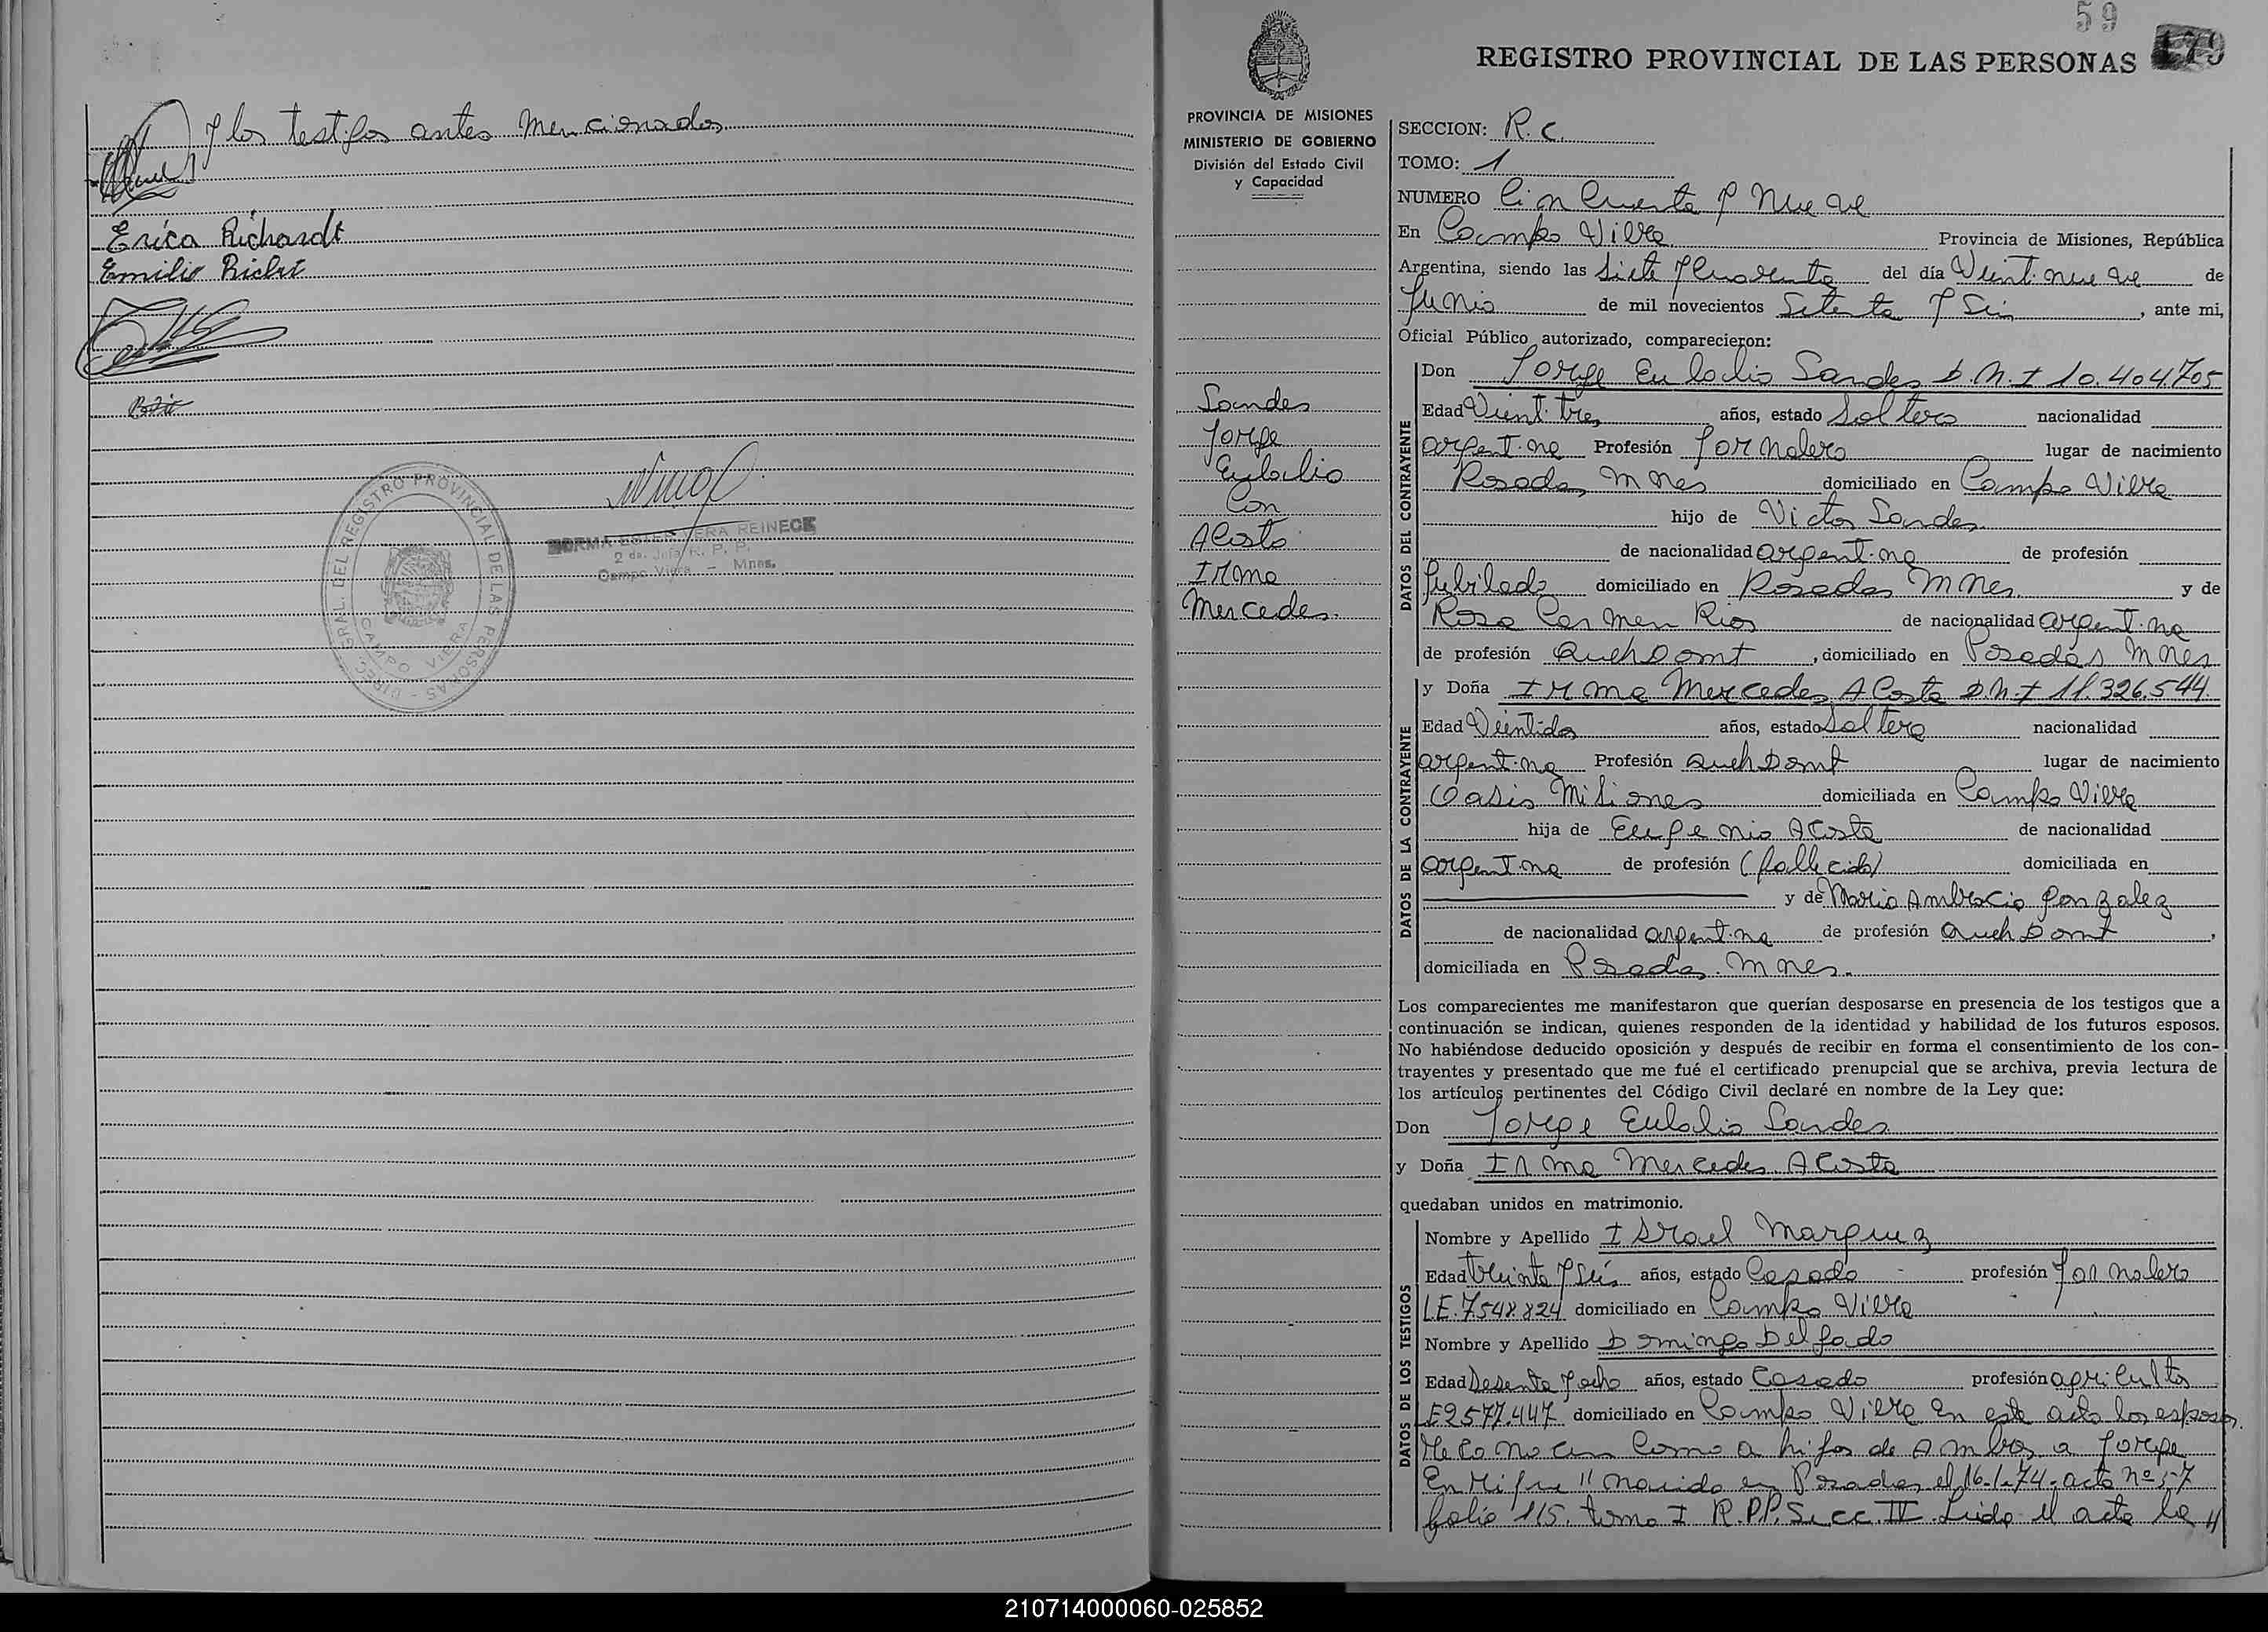 y los testigos antes mencionados
Erica Richardt
Emilio Richt
DIREC. GRAL. DEL REGISTRO PROVINCIAL DE LAS PERSONAS
CAMPO VIERA
NORMA ESTER VERA REINECK
2 da. Jefa R. P. P.
Campo Viera - Mnes.
59
179
REGISTRO PROVINCIAL DE LAS PERSONAS
PROVINCIA DE MISIONES
MINISTERIO DE GOBIERNO
División del Estado Civil
y Capacidad
Sandes
Jorge
Eulalio
Con
Acosta
Irma
Mercedes.
SECCION: R.C.
TOMO: 1
NUMERO Cincuenta y Nueve
En Campo Viera Provincia de Misiones, República
Argentina, siendo las Siete y Cuarenta del día Veintinueve de
Junio de mil novecientos Setenta y Seis, ante mi,
Oficial Público autorizado, comparecieron:
DATOS DEL CONTRAYENTE
Don Jorge Eulalio Sandes D.N.I 10.404.705
Edad Veintitres años, estado Soltero nacionalidad
argentina Profesión Jornalero lugar de nacimiento
Posadas Mnes domiciliado en Campo Viera
hijo de Victor Sandes
de nacionalidad argentina de profesión
Jubilado domiciliado en Posadas Mnes. y de
Rosa Carmen Rios de nacionalidad argentina
de profesión QuehDomt, domiciliado en Posadas Mnes
DATOS DE LA CONTRAYENTE
y Doña Irma Mercedes Acosta D.N.I 11.326.544
Edad Veintidos años, estado Soltera nacionalidad
argentina Profesión QuehDomt lugar de nacimiento
Oasis Misiones domiciliada en Campo Viera
hija de Eugenio Acosta de nacionalidad
argentina de profesión (fallecido) domiciliada en
y de Maria Ambrocia Gonzalez
de nacionalidad argentina de profesión QuehDomt,
domiciliada en Posadas. Mnes.
Los comparecientes me manifestaron que querían desposarse en presencia de los testigos que a
continuación se indican, quienes responden de la identidad y habilidad de los futuros esposos.
No habiéndose deducido oposición y después de recibir en forma el consentimiento de los con-
trayentes y presentado que me fué el certificado prenupcial que se archiva, previa lectura de
los artículos pertinentes del Código Civil declaré en nombre de la Ley que:
Don Jorge Eulalio Sandes
y Doña Irma Mercedes Acosta
quedaban unidos en matrimonio.
DATOS DE LOS TESTIGOS
Nombre y Apellido Israel Marquez
Edad treinta y seis años, estado Casado profesión Jornalero
L.E. 7.548.824 domiciliado en Campo Viera
Nombre y Apellido Domingo Delgado
Edad Sesenta y ocho años, estado Casado profesión agricultor
E2577.447 domiciliado en Campo Viera En este acto los esposos
Reconocen Como a hijos de Ambos a Jorge
Enrique " nacido en Posadas el 16-1-74-acta nº 57
folio 115. tomo I R.P.P. Secc. IV Leida el acta la
210714000060-025852